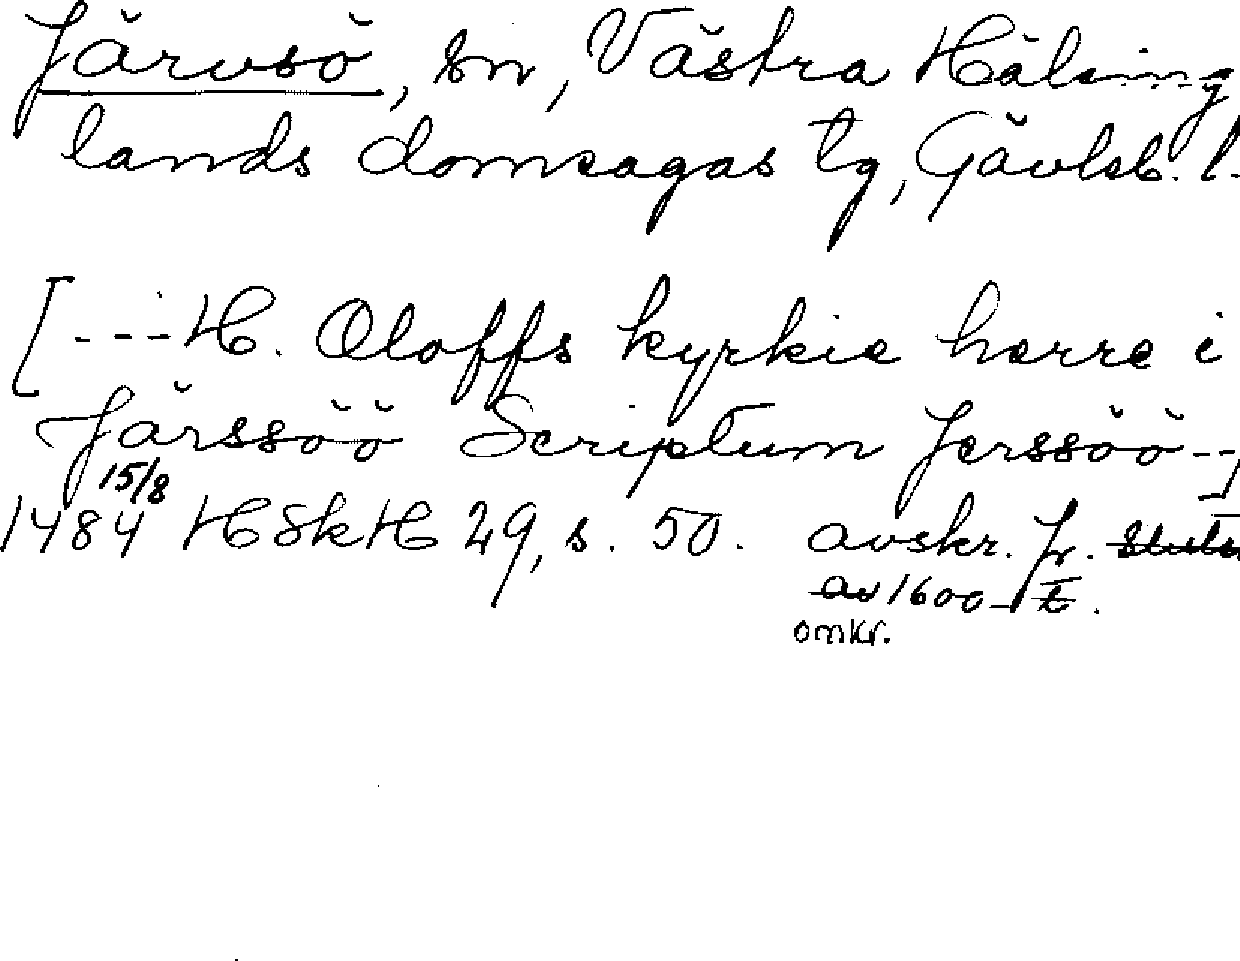 Järvsö, sn, Västra Hälsing
lands domsagas tg, Gävleb. l.
[---H. Oloffs kyrkie herre i
Järssöö Scriptum Jerssöö--]
15/8
1484 HSkH 29, s. 50. avskr. fr.
av 1600-t.
omkr.